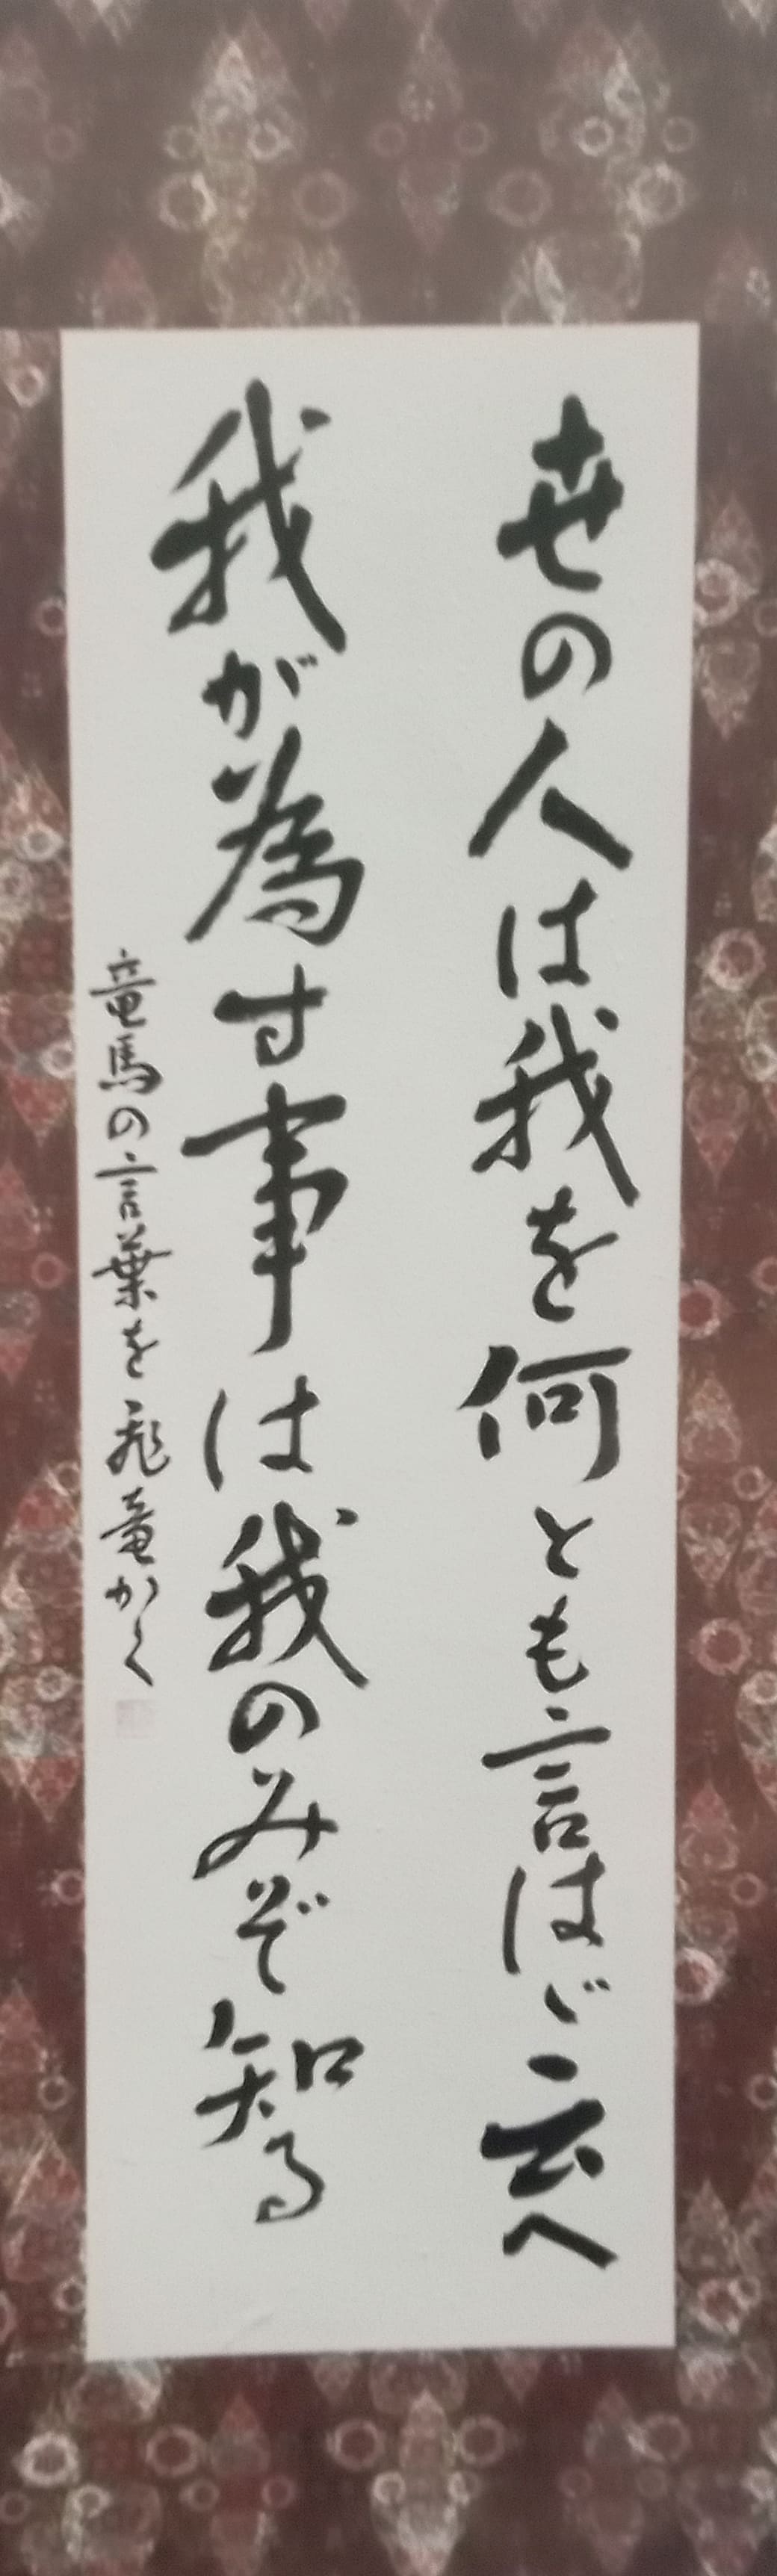 世の人は我を何とも言はゞ云へ
我が為す事は我のみぞ知る
竜馬の言葉を飛竜かく